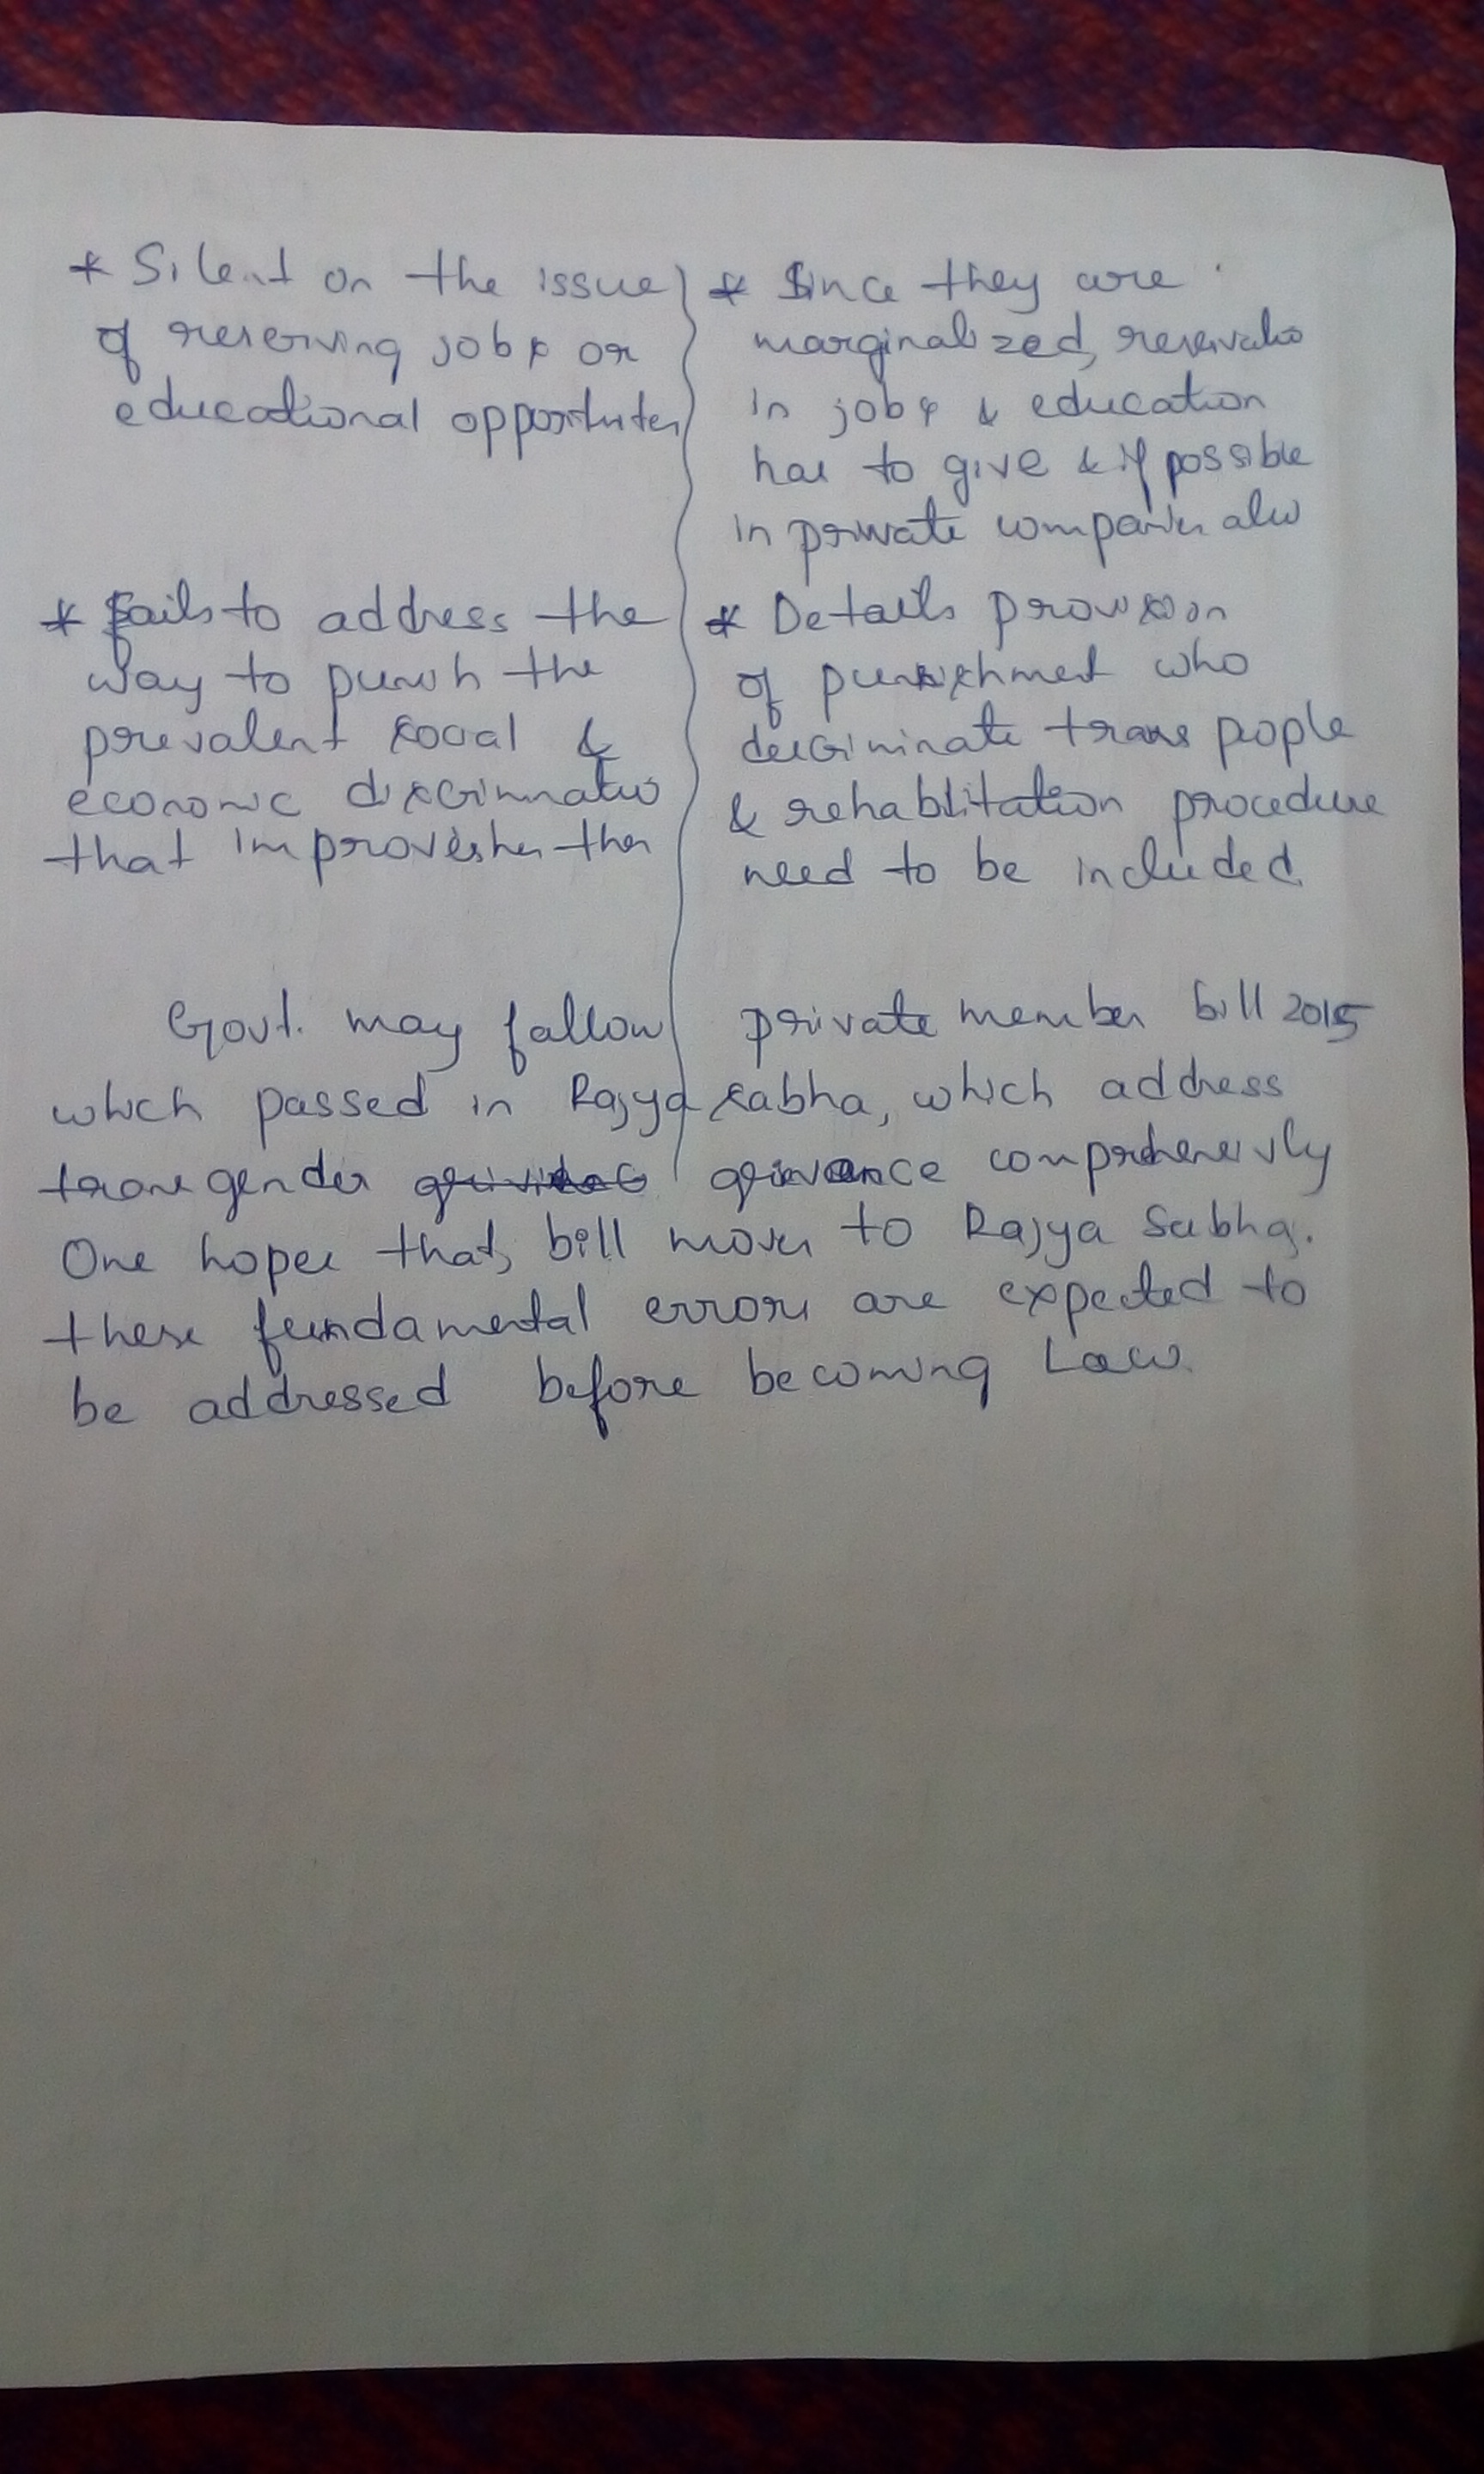 * Silent on the issue
of reserving jobs or
educational opportunites
* Since they are
marginalized, reservatio
in jobs & education
has to give & if possible
in private companies also
* fails to address the
way to punish the
prevalent social &
economic discriminatio
that improvishes then
* Details provision
of punishment who
descriminate trans people
& rehablitation procedure
need to be included
Govt. may fallow private member bill 2015
which passed in Rajya sabha, which address
transgender grievance comprehensivly
One hopes that, bill moves to Rajya Sabha.
these fundamental errors are expected to
be addressed before becoming Law.